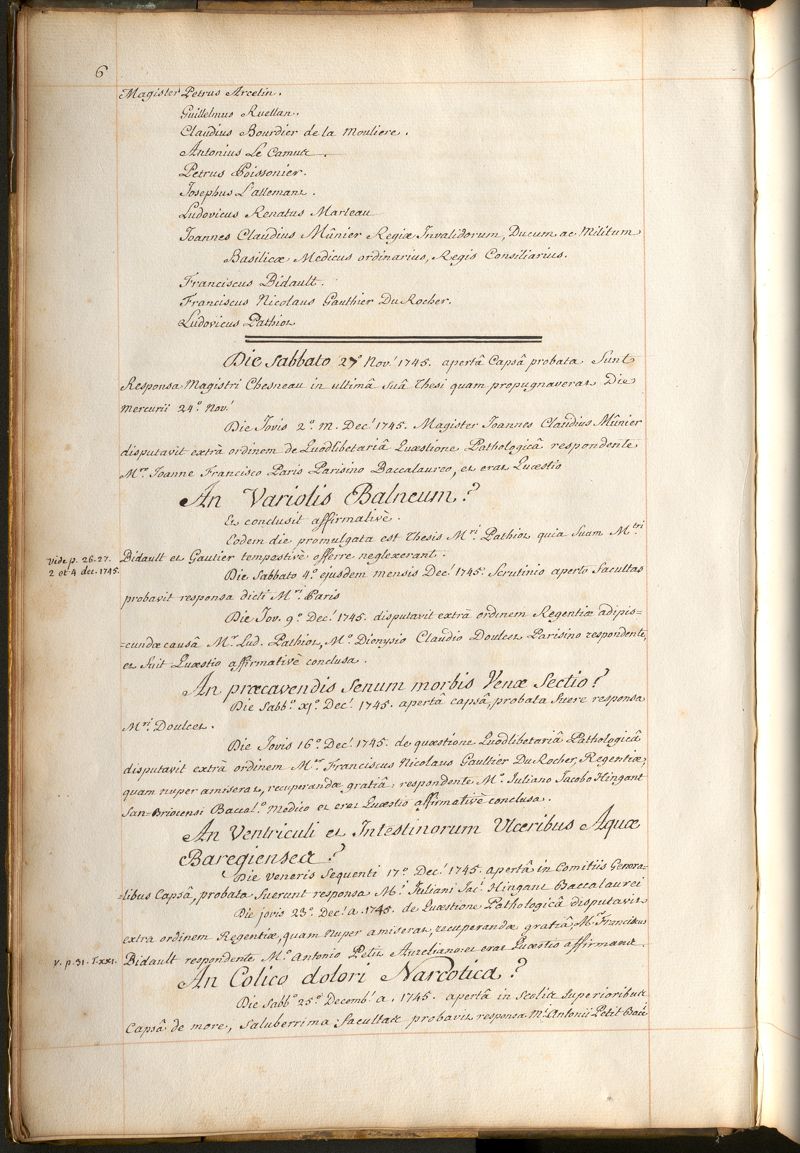 6
Magister Petrus Arcelin.
Guillelmus Ruellan.
Claudius Bourdier de la Mouliere.
Antonius Le Camus.
Petrus Poissonier.
Josephus L'allemant.
Ludovicus Renatus Marteau
Joannes Claudius Mûnier Regiæ Invalidorum, Ducum ac Militum
Basilicæ Medicus ordinarius, Regis Consiliarius.
Franciscus Bidault.
Franciscus Nicolaus Gauthier Du Rocher.
Ludovicus Pathiot
Die Sabbato 27ª Nov! 1745. apertâ Capsâ probata Sunt
Responsa Magistri Chesneau in ultimâ Suâ Thesi quam propugnaverat Die
Mercurii 24ª Nov!
Die Jovis 2ª m. Dec! 1745. Magister Joannes Claudius Mûnier
disputavit extrà ordinem de Quodlibetariâ Quæstione Pathologicâ respondente
Mro Joanne Francisco Paris Parisino Baccalaureo, et erat Quæstio
An Variolis Balneum?
Et conclusit affirmativè.
Eodem die promulgata est Thesis Mri Pathiot quia Suam Mtri
Vide p. 26. 27.
2 et 4 dec. 1745.
Bidault et Gautier tempestivè offerre neglexerant.
Die Sabbato 4ª ejusdem mensis Dec! 1745. Scrutinio aperto Facultas
probavit responsa dicti Mri Paris
Die Jov. 9ª Dec! 1745. disputavit extrà ordinem Regentiæ adipis=
=cundæ causâ Mr Lud. Pathiot, Mo Dionysio Claudio Doulcet Parisino respondente,
et fuit Quæstio affirmativè conclusa.
An præcavendis Senum morbis Venæ Sectio?
Die Sabbº xjª Dec! 1745. apertâ capsâ, probata fuere responsa
Mri Doulcet.
Die Jovis 16ª Dec! 1745. de quæstione Quodlibetariâ Pathologicâ
disputavit extrà ordinem Mr Franciscus Nicolaus Gaultier Du Rocher, Regentiæ,
quam nuper amiserat, recuperandæ gratiâ, respondente Mo Juliano Jacobo Hingant
San-Briocensi Baccalº Medico et erat Quæstio affirmativè conclusa.
An Ventriculi et Intestinorum Ulceribus Aquæ
Baregienses?
Die veneris Sequenti 17ª Dec! 1745. apertâ in Comitiis Genera=
=libus Capsâ, probata fuerunt responsa Mi Juliani Jaci Hingant Baccalaurei
Die jovis 23ª Dec! a. 1745. de Quæstione Pathologicâ disputavit
extra ordinem Regentiæ, quam nuper amiserat, recuperandæ gratiâ, Mr Franciscus
V. p. 31. T. XXI.
Bidault respondente Mo Antonio Petit Aureliano et erat Quæstio affirmand.
An Colico dolori Narcotica?
Die Sabbº 25ª Decemb! a. 1745. apertâ in Scolis Superioribus
Capsâ de more, Saluberrima Facultas probavit responsa Mi Antonii Petit Bacci